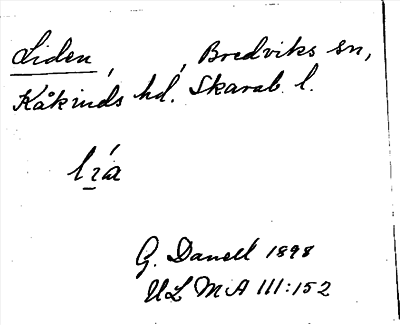 Liden, , Bredviks sn,
Kåkinds hd. Skarab. l.
G. Danell 1898
ULMA 111:152